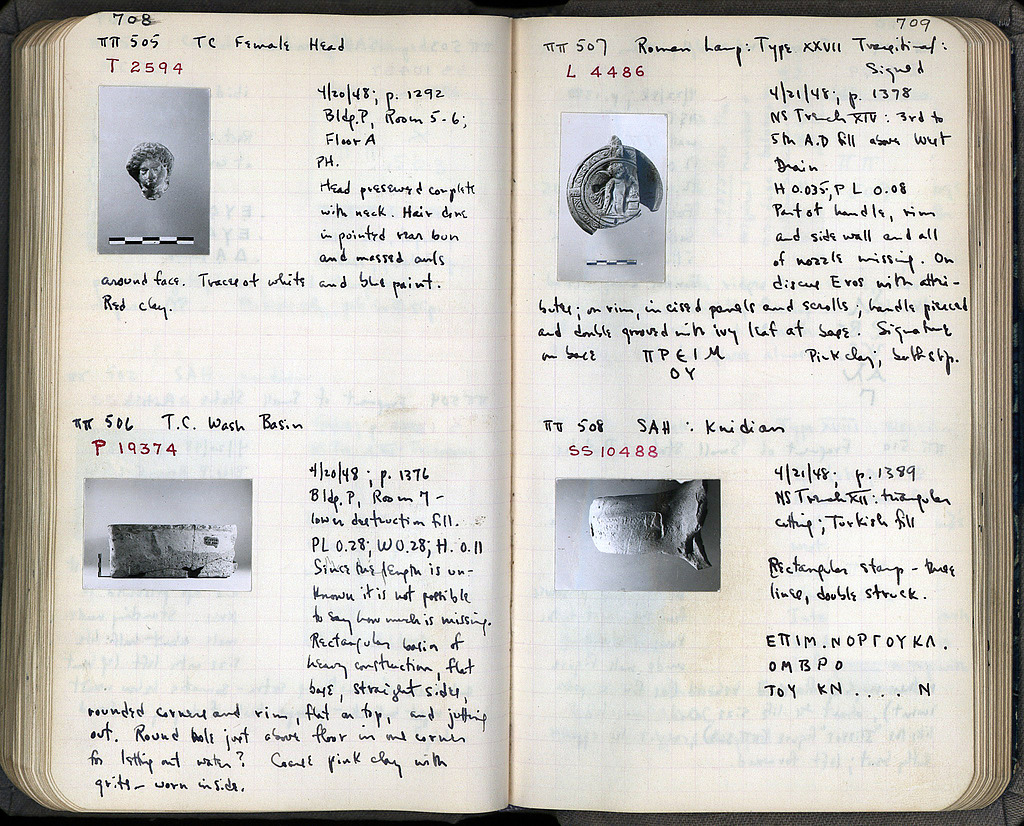 708
ΠΠ 505 TC Female Head
T 2594
4/20/48; p. 1292
Bldg. P, Room 5-6;
Floor A
PH.
Head preserved complete
with neck. Hair done
in pointed rear bun
and massed curls
around face. Traces of white and blue paint.
Red clay.
ΠΠ 506 T.C. Wash Basin
P 19374
4/20/48; p. 1376
Bldg. P, Room 7 -
lower destruction fill.
PL 0.28; W 0.28; H. 0.11
Since the length is un-
known it is not possible
to say how much is missing.
Rectangular basin of
heavy construction, flat
base straight sides,
rounded corners and rim, flat on top, and jutting
out. Round hole just above floor in one corner
for letting out water? Coarse pink clay with
grits - worn inside.
709
ΠΠ 507 Roman Lamp: Type XXVII Transitional:
Signed
L 4486
4/21/48; p. 1378
NS Trench XIV: 3rd to
5th A.D fill above West
Drain
H 0.035, P L 0.08
Part of handle, rim
and side wall and all
of nozzle missing. On
discus Eros with attri-
butes; on rim, incised panels and scrolls; handle pierced
and double grooved with ivy leaf at base. Signature
on base ΠΡΕΙΜ Pink clay;
ΟΥ
ΠΠ 508 SAH: Knidian
SS 10488
4/21/48; p. 1389
NS Trench XII: triangular
cutting; Turkish fill
Rectangular stamp - three
lines, double struck.
ΕΠΙΜ.ΝΟΡΓΟΥΚΛ.
ΟΜΒΡΟ
ΤΟΥ ΚΝ Ν